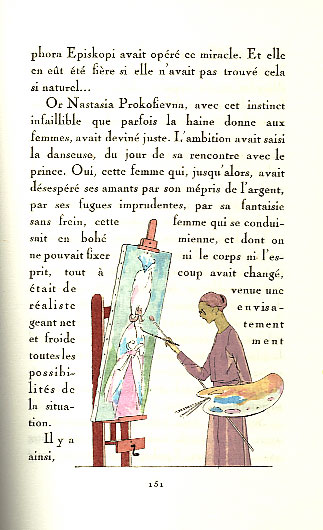 phora Episkopi avait opéré ce miracle. Et elle
en eût été fière si elle n'avait pas trouvé cela
si naturel...
Or Nastasia Prokofievna, avec cet instinct
infaillible que parfois la haine donne aux
femmes, avait deviné juste. L'ambition avait saisi
la danseuse, du jour de sa rencontre avec le
prince. Oui, cette femme qui, jusqu'alors, avait
désespéré ses amants par son mépris de l'argent,
par ses fugues imprudentes, par sa fantaisie
sans frein, cette femme qui se condui-
sait en bohé mienne, et dont on
ne pouvait fixer ni le corps ni l'es-
prit, tout à coup avait changé,
était de venue une
réaliste envisa-
geant net tement
et froide ment
toutes les
possibi-
lités de
la situa-
tion.
Il y a
ainsi,
151